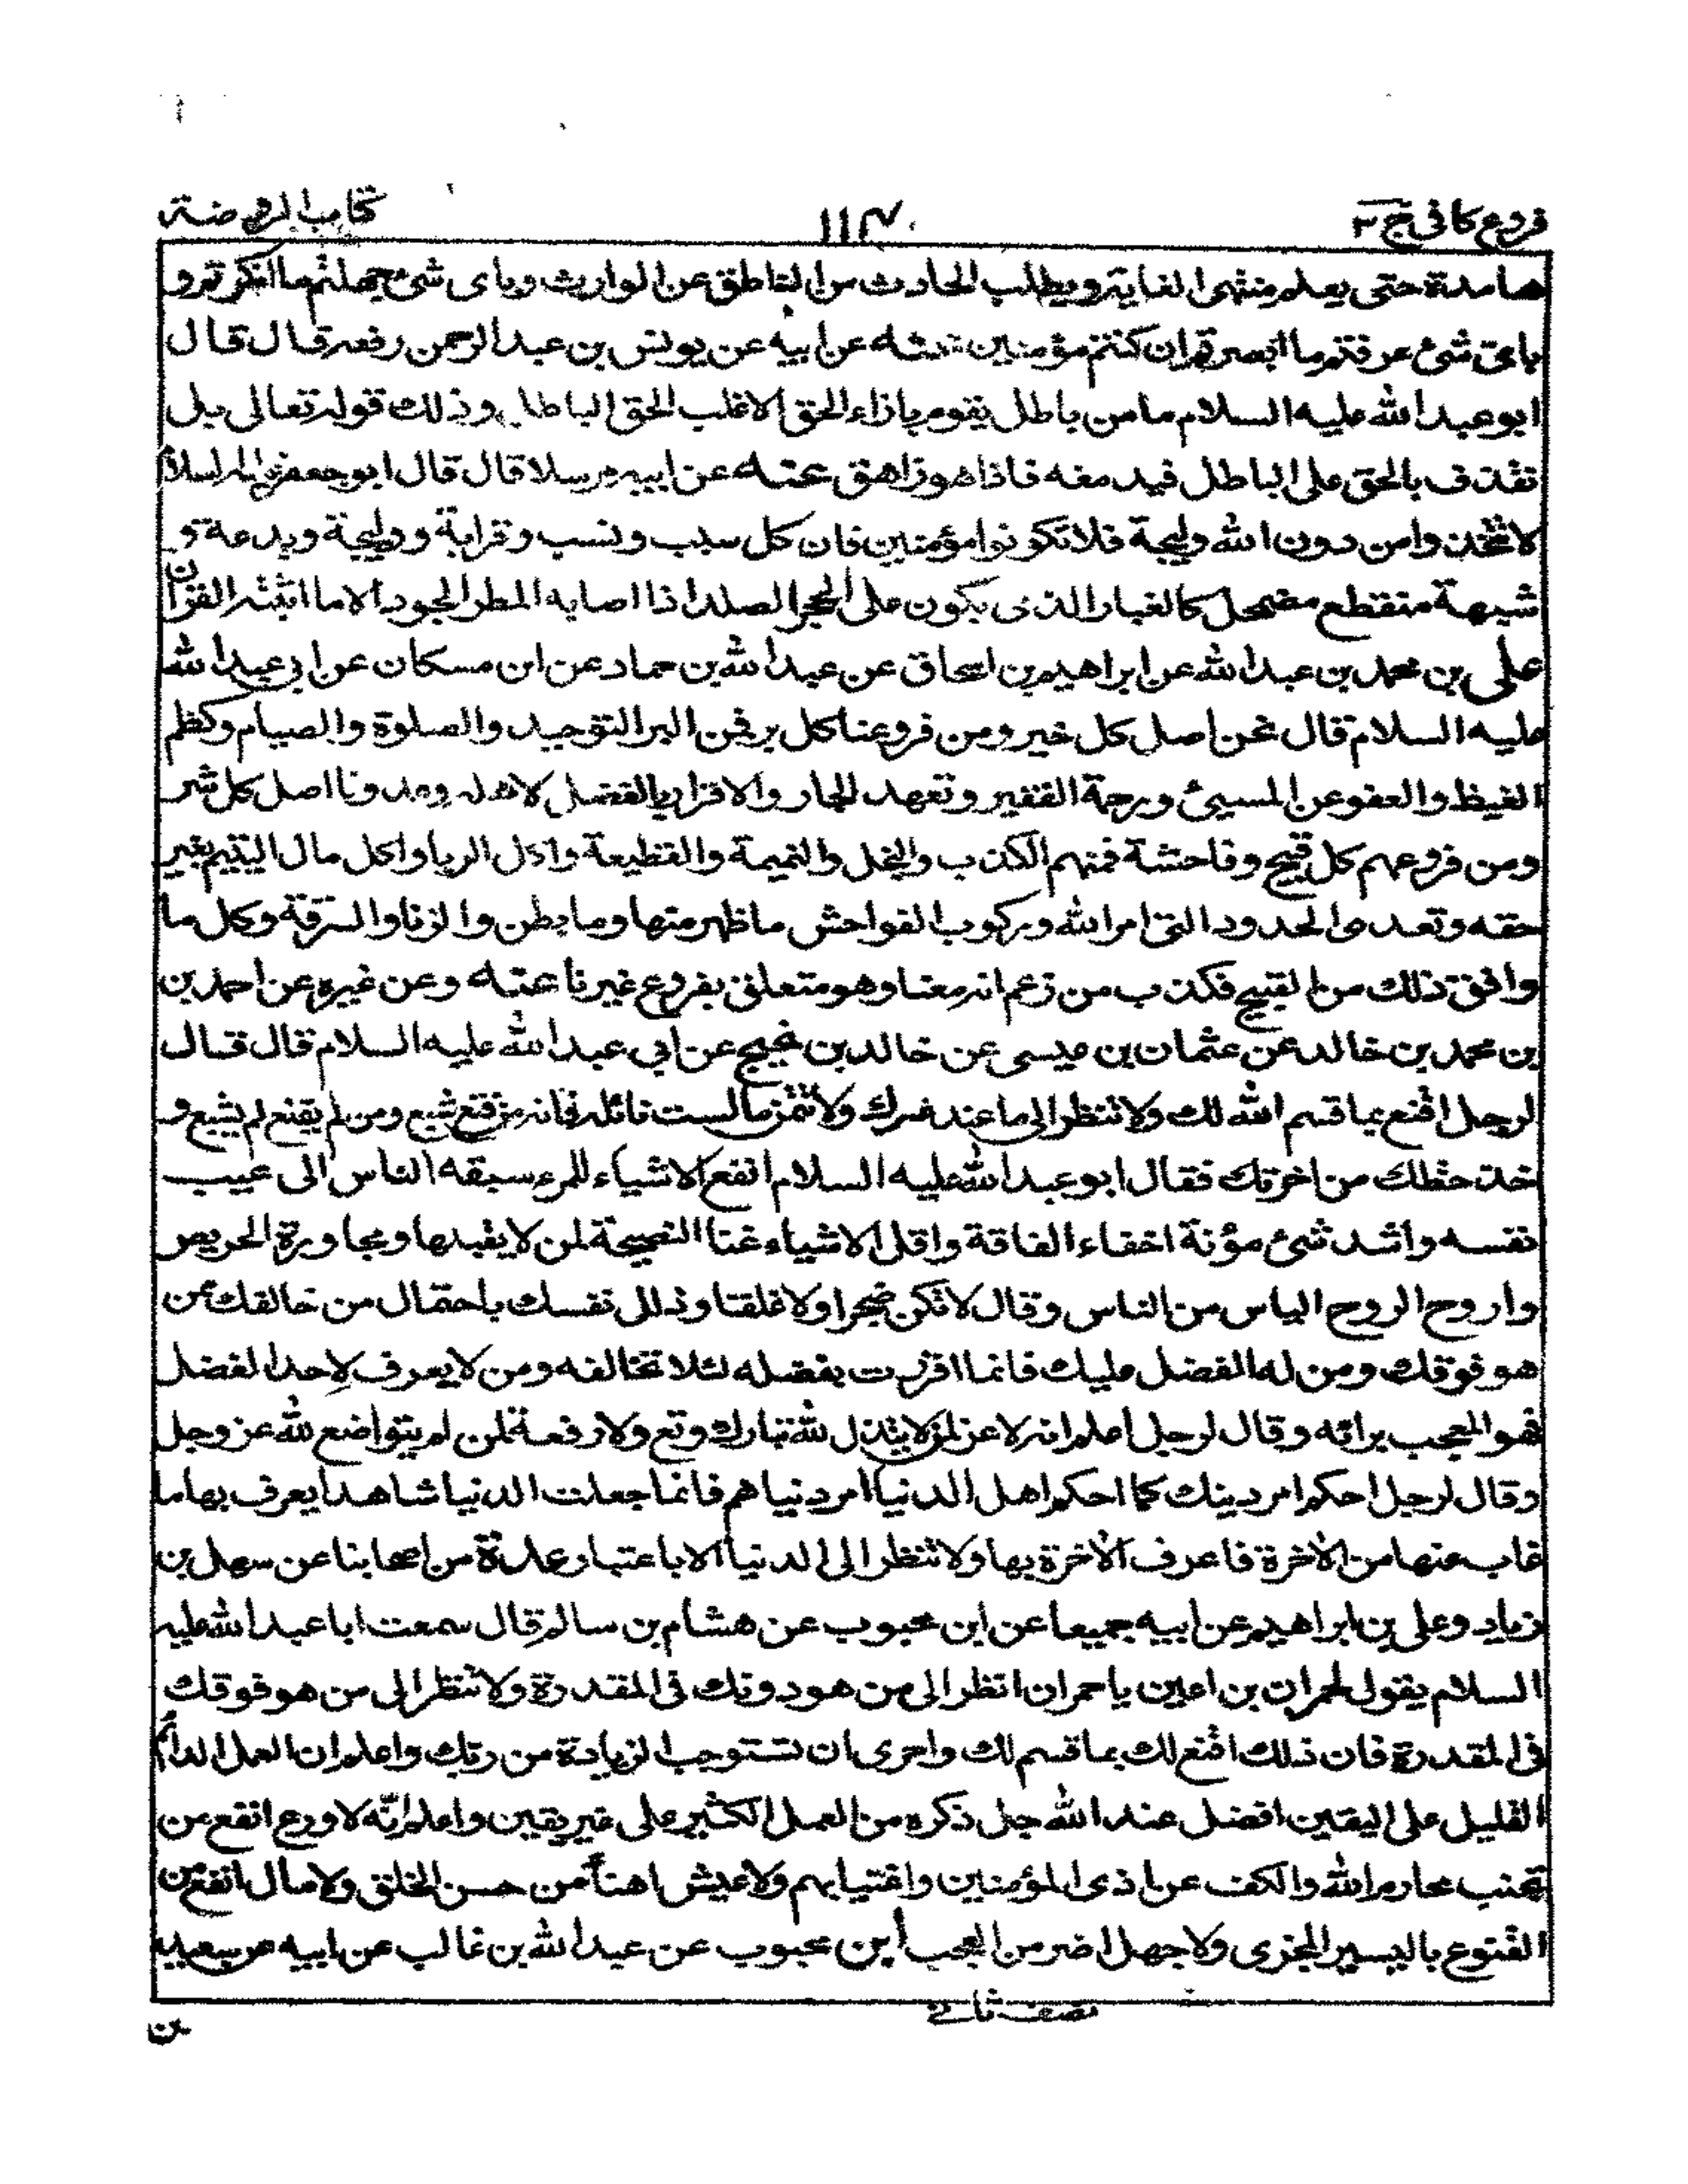 فروع كافى ج ٣
١١٤
كتاب الروضة
هامدة حتى يعلم منتهى الغاية ويطلب الحادث من الناطق عن الوارث وباى شئ جهلتم ما انكرتم و
باى شئ عرفتم ما ابصرتم ان كنتم مؤمنين عنه عن ابيه عن يونس بن عبد الرحمن رفعه قال قال
ابو عبد الله عليه السلام ما من باطل يقوم بازاء الحق الا غلب الحق الباطل وذلك قوله تعالى بل
نقذف بالحق على الباطل فيدمغه فاذا هو زاهق عنه عن ابيه مرسلا قال قال ابو جعفر عليه السلام
لا تتخذوا من دون الله وليجة فلا تكونوا مؤمنين فان كل سبب ونسب وقرابة ووليجة وبدعة و
شبهة منقطع مضمحل كالغبار الذى يكون على الحجر الصلد اذا اصابه المطر الجود الا ما اثبته القران
على بن محمد بن عبد الله عن ابراهيم بن اسحاق عن عبد الله بن حماد عن ابن مسكان عن ابي عبد الله
عليه السلام قال نحن اصل كل خير ومن فروعنا كل بر فمن البر التوحيد والصلوة والصيام وكظم
الغيظ والعفو عن المسيئ ورحمة الفقير وتعهد الجار والاقرار بالفضل لاهله وعدونا اصل كل شر
ومن فروعهم كل قبيح وفاحشة فمنهم الكذب والبخل والنميمة والقطيعة واكل الربا واكل مال اليتيم بغير
حقه وتعدى الحدود التى امر الله وركوب الفواحش ما ظهر منها وما بطن والزنا والسرقة وكل ما
وافق ذلك من القبيح فكذب من زعم انه معنا وهو متعلق بفروع غيرنا عنه وعن غيره عن احمد بن
بن محمد بن خالد عن عثمان بن عيسى عن خالد بن نجيح عن ابي عبد الله عليه السلام قال قال
لرجل اقنع بما قسم الله لك ولا تنظر الى ما عند غيرك ولا تتمن ما لست نائله فانه من قنع شبع ومن لم يقنع لم يشبع و
خذ حظك من اخرتك فقال ابو عبد الله عليه السلام انفع الاشياء للمرء سبقه الناس الى عيب
نفسه واشد شئ مؤنة اخفاء الفاقة واقل الاشياء غنا النصيحة لمن لا يقبلها ومجاورة الحريص
واروح الروح الياس من الناس وقال لا تكن ضجرا ولا غلقا وذلل نفسك باحتمال من خالفك ممن
هو فوقك ومن له الفضل عليك فانما اقررت بفضله لئلا تخالفه ومن لا يعرف لاحد الفضل
فهو المعجب برائه وقال لرجل اعلم انه لا عز لمن لا يتذلل لله تبارك وتع ولا رفعة لمن لم يتواضع لله عز وجل
وقال لرجل احكم امر دينك كما احكم اهل الدنيا امر دنياهم فانما جعلت الدنيا شاهدا يعرف بها ما
غاب عنها من الاخرة فاعرف الاخرة بها ولا تنظر الى الدنيا الا باعتبار عدة من اصحابنا عن سهل بن
زياد وعلى بن ابراهيم عن ابيه جميعا عن ابن محبوب عن هشام بن سالم قال سمعت ابا عبد الله عليه
السلام يقول لحمران بن اعين يا حمران انظر الى من هو دونك فى المقدرة ولا تنظر الى من هو فوقك
فى المقدرة فان ذلك اقنع لك بما قسم لك واحرى ان تستوجب الزيادة من ربك واعلم ان العمل الدائم
القليل على اليقين افضل عند الله جل ذكره من العمل الكثير على غير يقين واعلم انّه لا ورع انفع من
تجنب محارم الله والكف عن اذى المؤمنين واغتيابهم ولا عيش اهنأ من حسن الخلق ولا مال انفع من
القنوع باليسير المجزى ولا جهل اضر من العجب ابن محبوب عن عبد الله بن غالب عن ابيه عن سعيد
نصف ثانے
بن